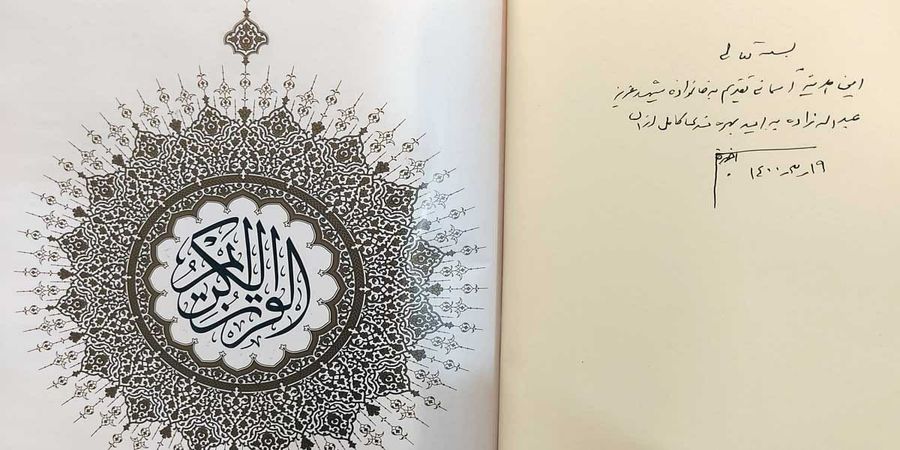 القرآن الكريم
بسمه تعالی
این هدیهٔ آسمانی تقدیم به خانواده شهید عزیز
عبداله زاده به امید بهره مندی کامل از آن
۱۹ مهر ۱۴۰۰